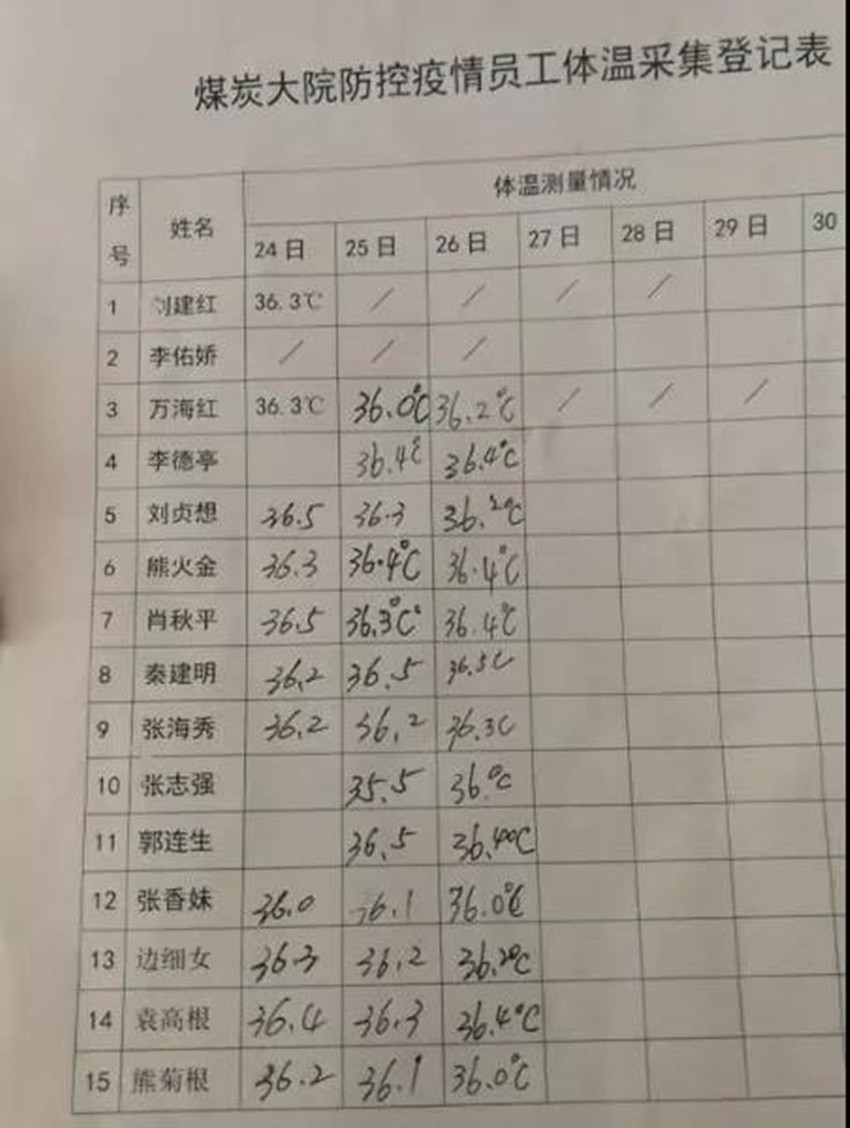 煤炭大院防控疫情员工体温采集登记表
序号 姓名 体温测量情况
24日 25日 26日 27日 28日 29日 30
1 刘建红 36.3℃ / / / /
2 李佑娇 / / /
3 万海红 36.3℃ 36.0℃ 36.2℃ / / /
4 李德亭 36.4℃ 36.4℃
5 刘贞想 36.5 36.3 36.2℃
6 熊火金 36.3 36.4℃ 36.4℃
7 肖秋平 36.5 36.3℃ 36.4℃
8 秦建明 36.2 36.5 36.5C
9 张海秀 36.2 36.2 36.3C
10 张志强 35.5 36.℃
11 郭连生 36.5 36.4℃
12 张香妹 36.0 36.1 36.0℃
13 边细女 36.3 36.2 36.2℃
14 袁高根 36.4 36.3 36.4℃
15 熊菊根 36.2 36.1 36.0℃